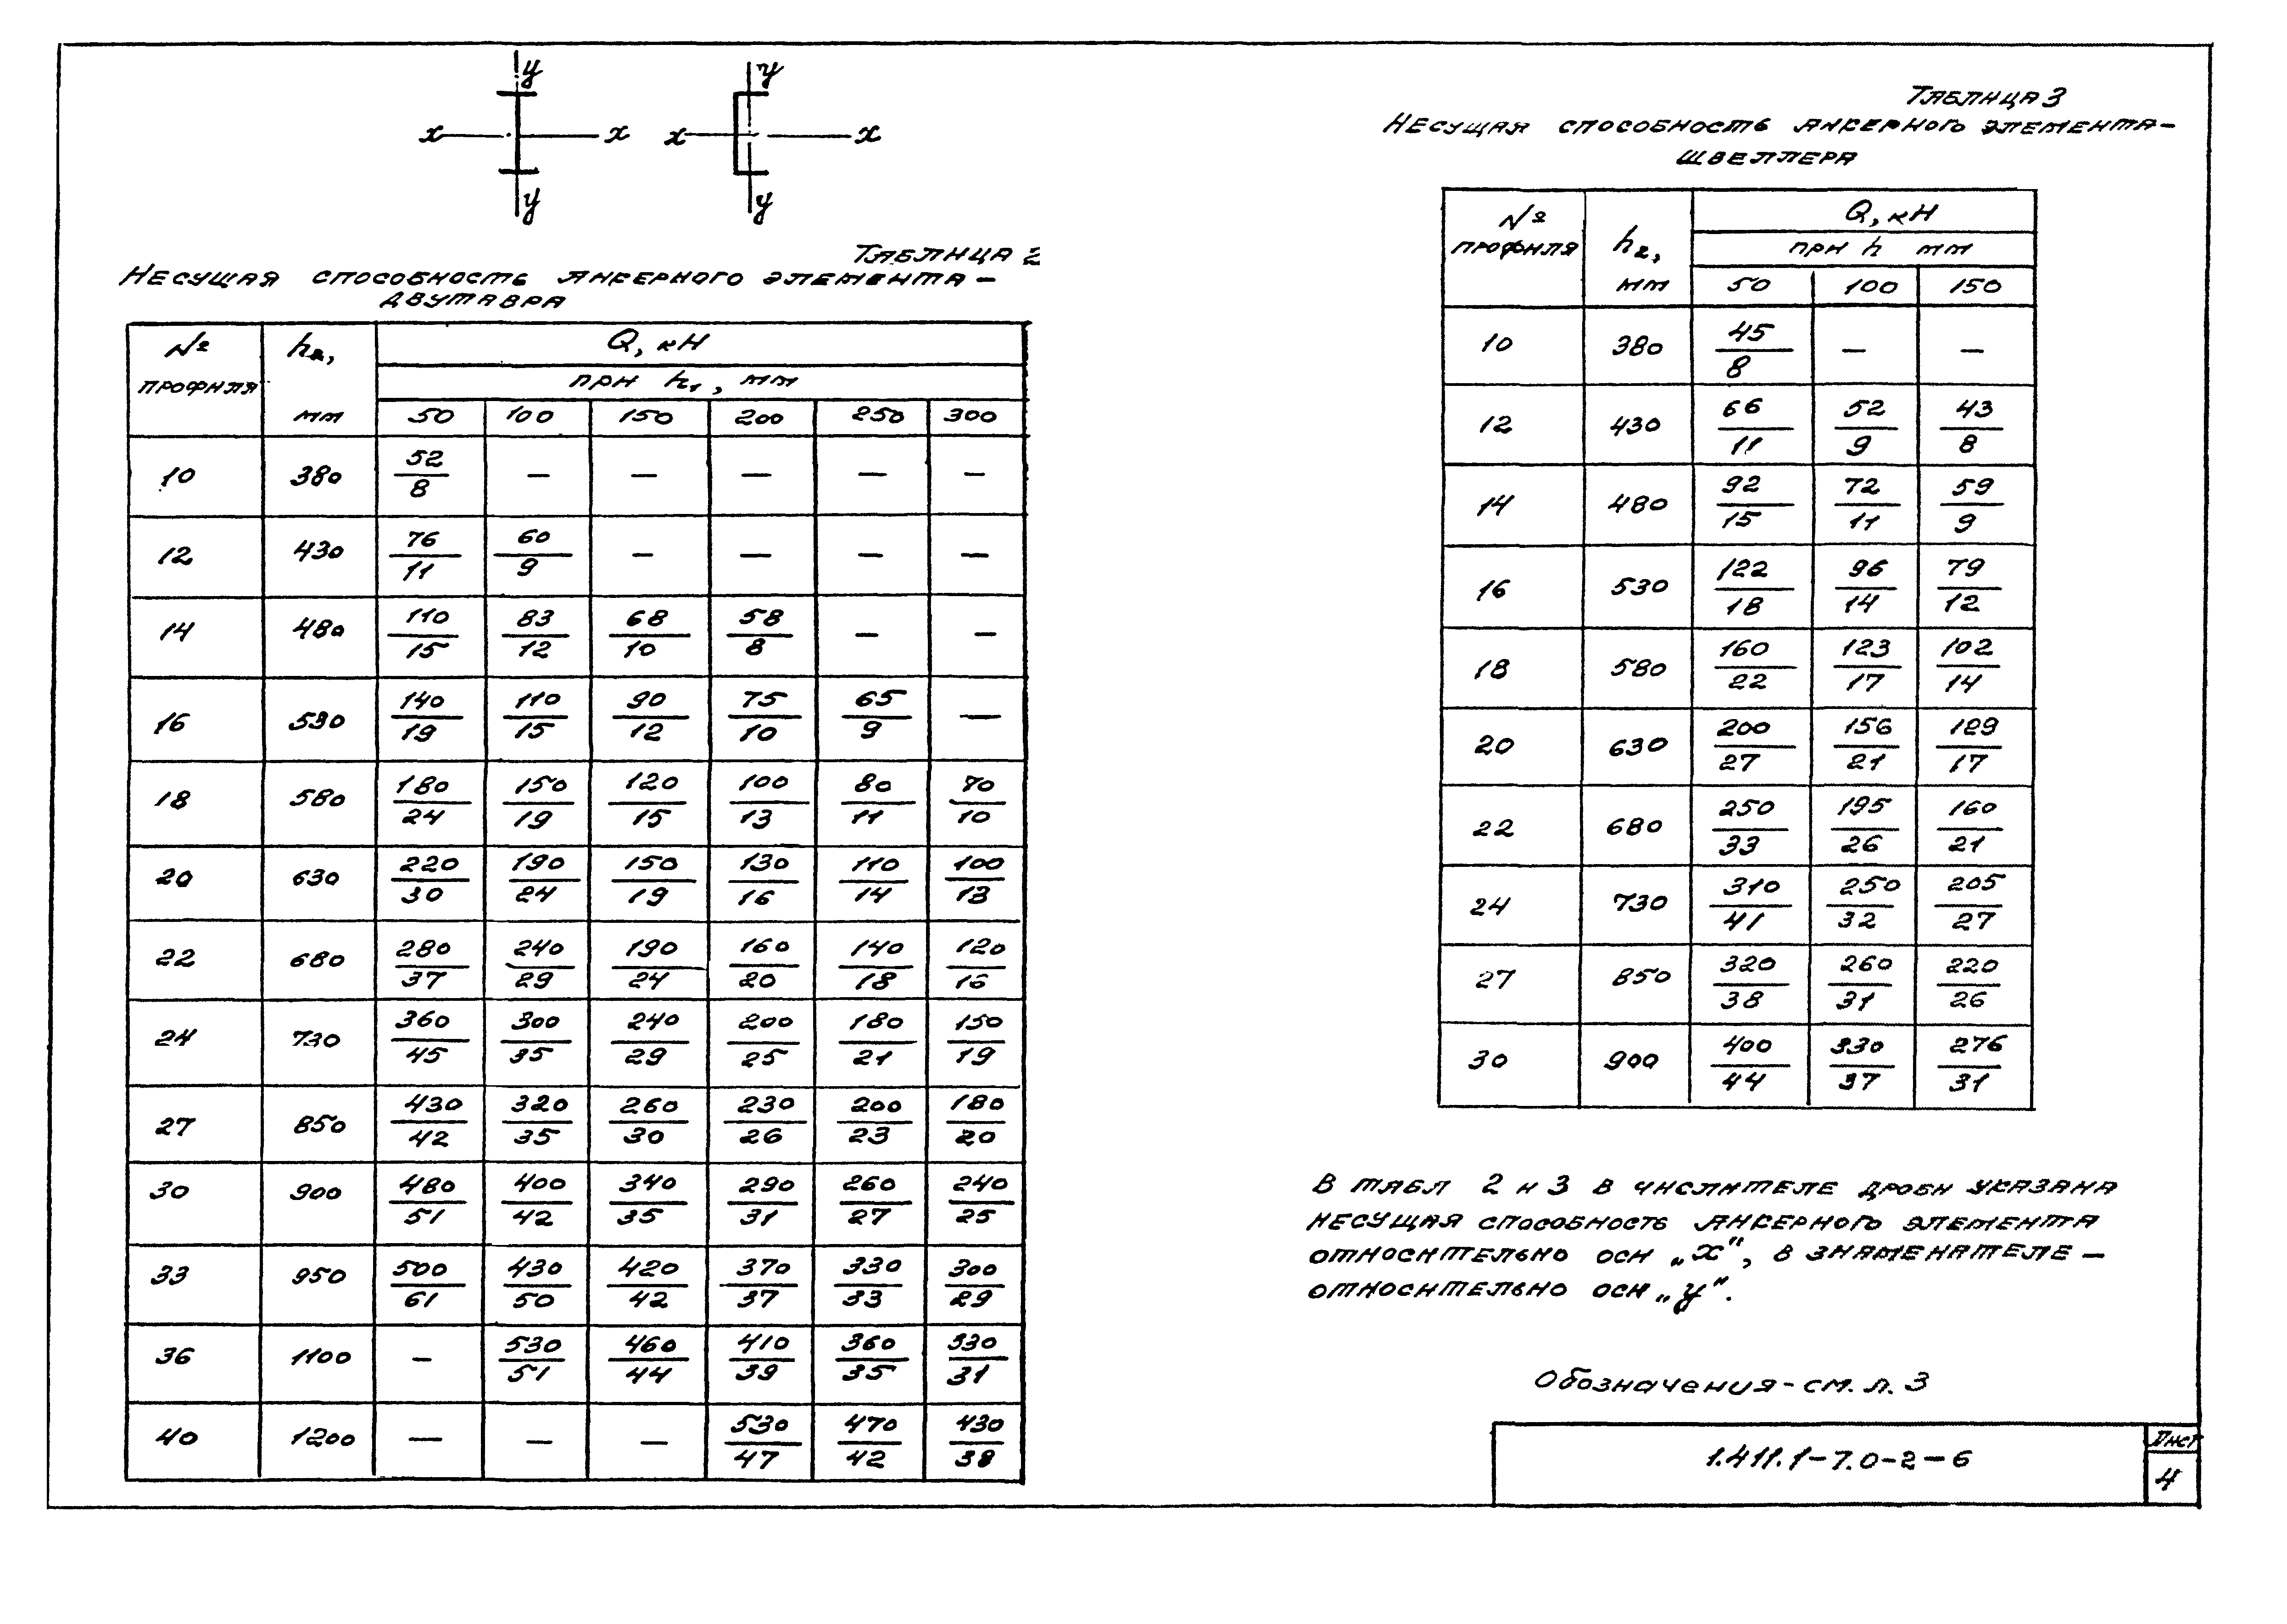 у у
x x x x
у у
Таблица 2
Несущая способность анкерного элемента –
двутавра
№ профиля h2, мм Q, кН
при h1, мм
50 100 150 200 250 300
10 380 52/8 – – – – –
12 430 76/11 60/9 – – – –
14 480 110/15 83/12 68/10 58/8 – –
16 530 140/19 110/15 90/12 75/10 65/9 –
18 580 180/24 150/19 120/15 100/13 80/11 70/10
20 630 220/30 190/24 150/19 130/16 110/14 100/13
22 680 280/37 240/29 190/24 160/20 140/18 120/16
24 730 360/45 300/35 240/29 200/25 180/21 150/19
27 850 430/42 320/35 260/30 230/26 200/23 180/20
30 900 480/51 400/42 340/35 290/31 260/27 240/25
33 950 500/61 430/50 420/42 370/37 330/33 300/29
36 1100 – 530/51 460/44 410/39 360/35 330/31
40 1200 – – – 530/47 470/42 430/38
Таблица 3
Несущая способность анкерного элемента –
швеллера
№ профиля h2, мм Q, кН
при h мм
50 100 150
10 380 45/8 – –
12 430 66/11 52/9 43/8
14 480 92/15 72/11 59/9
16 530 122/18 96/14 79/12
18 580 160/22 123/17 102/14
20 630 200/27 156/21 129/17
22 680 250/33 195/26 160/21
24 730 310/41 250/32 205/27
27 850 320/38 260/31 220/26
30 900 400/44 330/37 276/31
В табл 2 и 3 в числителе дроби указана
несущая способность анкерного элемента
относительно оси „x", в знаменателе –
относительно оси „у".
Обозначения - см. л. 3
1.411.1-7.0-2-6
Лист
4